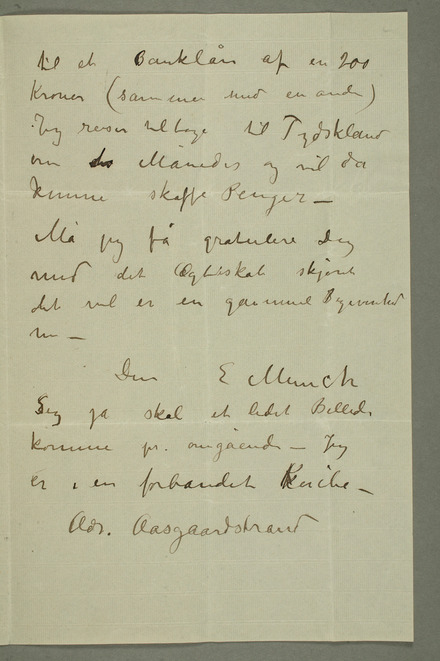 til et Banklån af en 200
Kroner (sammen med en anden)
Jeg reiser tilbage til Tydskland
om Månedes og vil da
kunne skaffe Penger –
Må jeg få gratulere Dig
med det Ægteskab skjønt
det vel er en gammel Begivenhed
nu –
Din E Munch
Sig ja skal et lidet Billede
komme pr. omgående – Jeg
er i en forbandet Knibe –
Adr. Aasgaardstrand